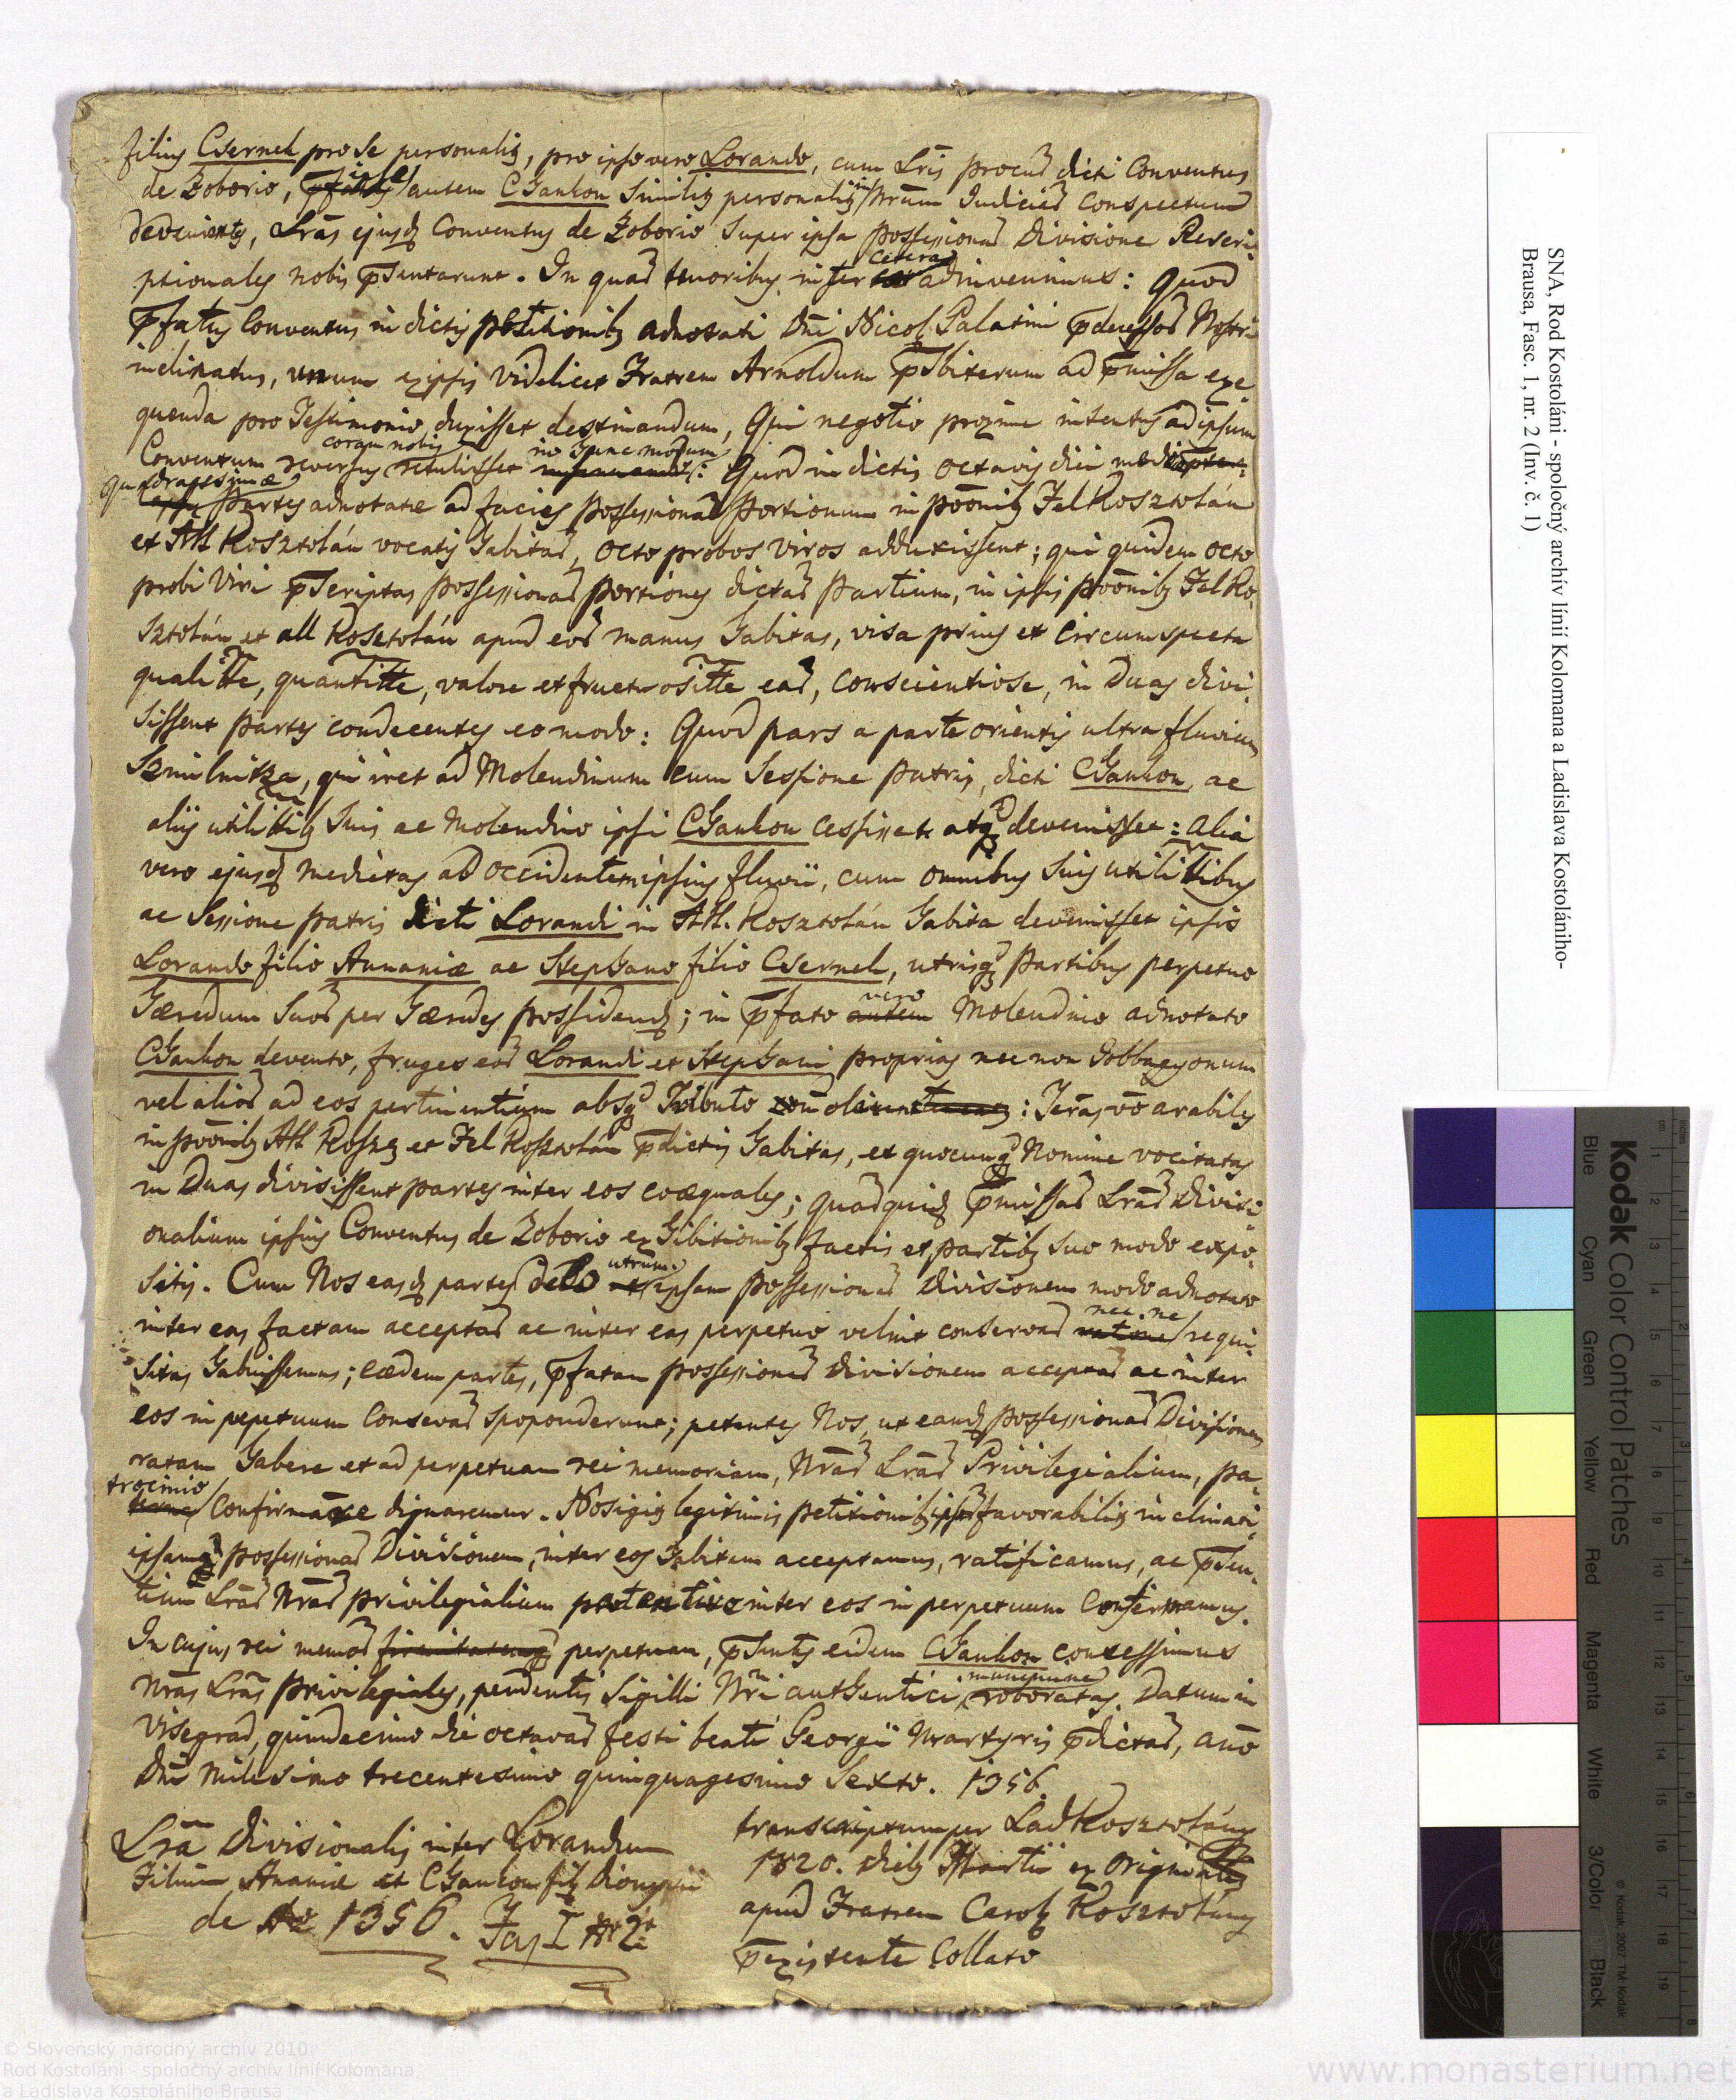 filius Csernek pro se personaliter, pro ipso vero Lorando, cum Lris procur dicti Conventus
de Zoborio, ipse autem Chankou similiter personaliter in Nrum Judiciar Conspectum
devenientes, Lras ejusd Conventus de Zoborio super ipsa possessionar Divisione Rescri-
ptionales nobis psentarunt. In quar tenoribus inter cetera adinvenimus: Quod
pfatus Conventus in dictis petitionibz adnotati Dni Nicol Palatini pdecessor Nostri
inclinatus, unum ex ipsis videlicet Fratrem Arnoldum psbiterum ad pmissa exe-
quenda pro Testimonio duxisset destinandum, Qui negotio proxime intentus ad ipsum
Conventum reversus coram nobis retulisset in hunc modum: Quod in dictis octavis diei medi
quadragesimæ partes adnotatæ ad facies possessionar portionum in poonibz Fel Kosztolán
et All Kosztolán vocatis habitar, octo probos viros adduxissent; qui quidem octo
probi viri pscriptas possessionar portiones dictar partium, in ipsis poonibz Fel Ko-
sztolán et all Kosztolán apud eor manus habitas, visa prius et circumspecta
qualitte, quantitte, valore et fructuositte ear, conscientiose, in duas divi-
sissent partes condecentes eo modo: Quod pars a parte orientis ultra fluvium
Szmilnitza, qui iret ad Molendinum cum Sessione patris dicti Chankou, ac
aliis utilittibz suis ac Molendino ipsi Chankou cessisset atq devenisset: alia
vero ejusd medietas ad occidentem ipsius fluvii, cum omnibus suis utilittibus
ac Sessione patris dicti Lorandi in All. Kosztolán habita devenisset ipsis
Lorando filio Ananiæ ac Stephano filio Csernek, utrisq partibus perpetuo
hæredum suor per hæredes possidend; in pfato vero Molendino adnotato
Chankou devento, fruges eor Lorandi et Stephani proprias nec non Jobbagyonum
vel alior ad eos pertinentium absq Tributo : Teras vo arabiles
in poonibz All Kosz et Fel Kosztolán pdictis habitas, et quocunq Nomine vocitatas
in Duas divisissent partes inter eos coæquales; quarquid pmissar Lrar Divisi-
onalium ipsius Conventus de Zoborio exhibitionibz factis et partibz suo modo expo-
sitis. Cum Nos easd partes de eo utrum ipsam possessionar Divisionem modo adnotato
inter eas factam acceptar ac inter eas perpetuo velint conservar nec ne requi-
sitas habuissemus; eædem partes, pfatam possessionar divisionem acceptar ac inter
eos in pepetuum Consevar spoponderunt; petentes Nos, ut eand possessionar Divisionem
ratam habere et ad perpetuam rei memoriam, Nrar Lrar Privilegialium, pa-
trocinio Confirmare dignaremur. Nos igitur legitimis petitionibz ipsor favorabiliter inclinati
ipsamq possessionar Divisionem, inter eos habitam acceptamus, ratificamus, ac psen-
tium Lrar Nrar privilegialium inter eos in perpetuum Confirmamus.
In cujus rei memor firmitatemq perpetuam, psentes eidem Chankou concessimus
Nras Lras privilegiales, pendentis Sigilli Nri authentici munimine roboratas. Datum in
Visegrad, quindecimo die octavar festi beati Georgii Martyris pdictar, ano
Dni Milesimo trecentesimo quinquagesimo Sexto. 1356.
Lra Divisionalis inter Lorandum
Filium Ananiæ et Chankou fil Dionysii
de Ao 1356. Fas I No 2
transcriptum per Lad Kosztolány
1820. Martii ex Originali
apud Fratrem Carol Kosztolány
pexistente Collato
SNA, Rod Kostoláni - spoločný archív línií Kolomana a Ladislava Kostolániho-
Brausa, Fasc. 1, nr. 2 (Inv. č. 1)
Kodak Color Control Patches
Blue Cyan Green Yellow Red Magenta White 3/Color Black
© Kodak, 2007 TM: Kodak
© Slovenský národný archív 2010.
Rod Kostoláni - spoločný archív línií Kolomana
a Ladislava Kostolániho-Brausa
www.monasterium.net